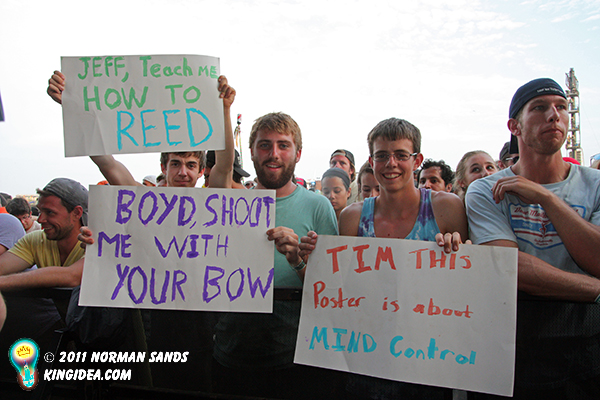 JEFF, Teach ME
HOW TO
REED
BOYD, SHOOT
ME WITH
YOUR BOW
TIM This
Poster is about
MIND Control
© 2011 NORMAN SANDS
KINGIDEA.COM